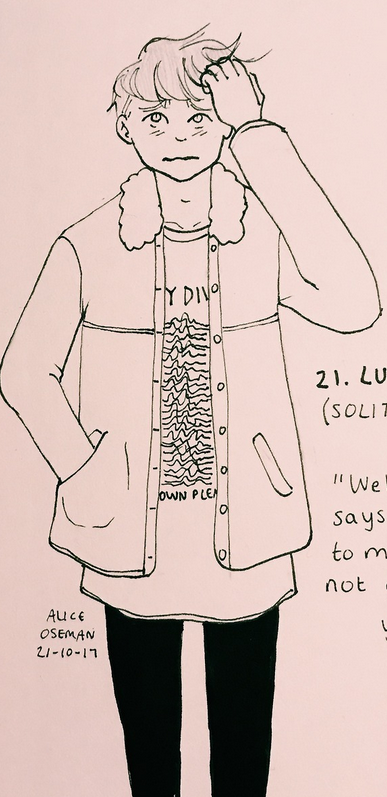 Y DIV
OWN PLEA
21. LU
(SOLIT
"Wel
says
to m
not
ALICE
OSEMAN
21-10-17